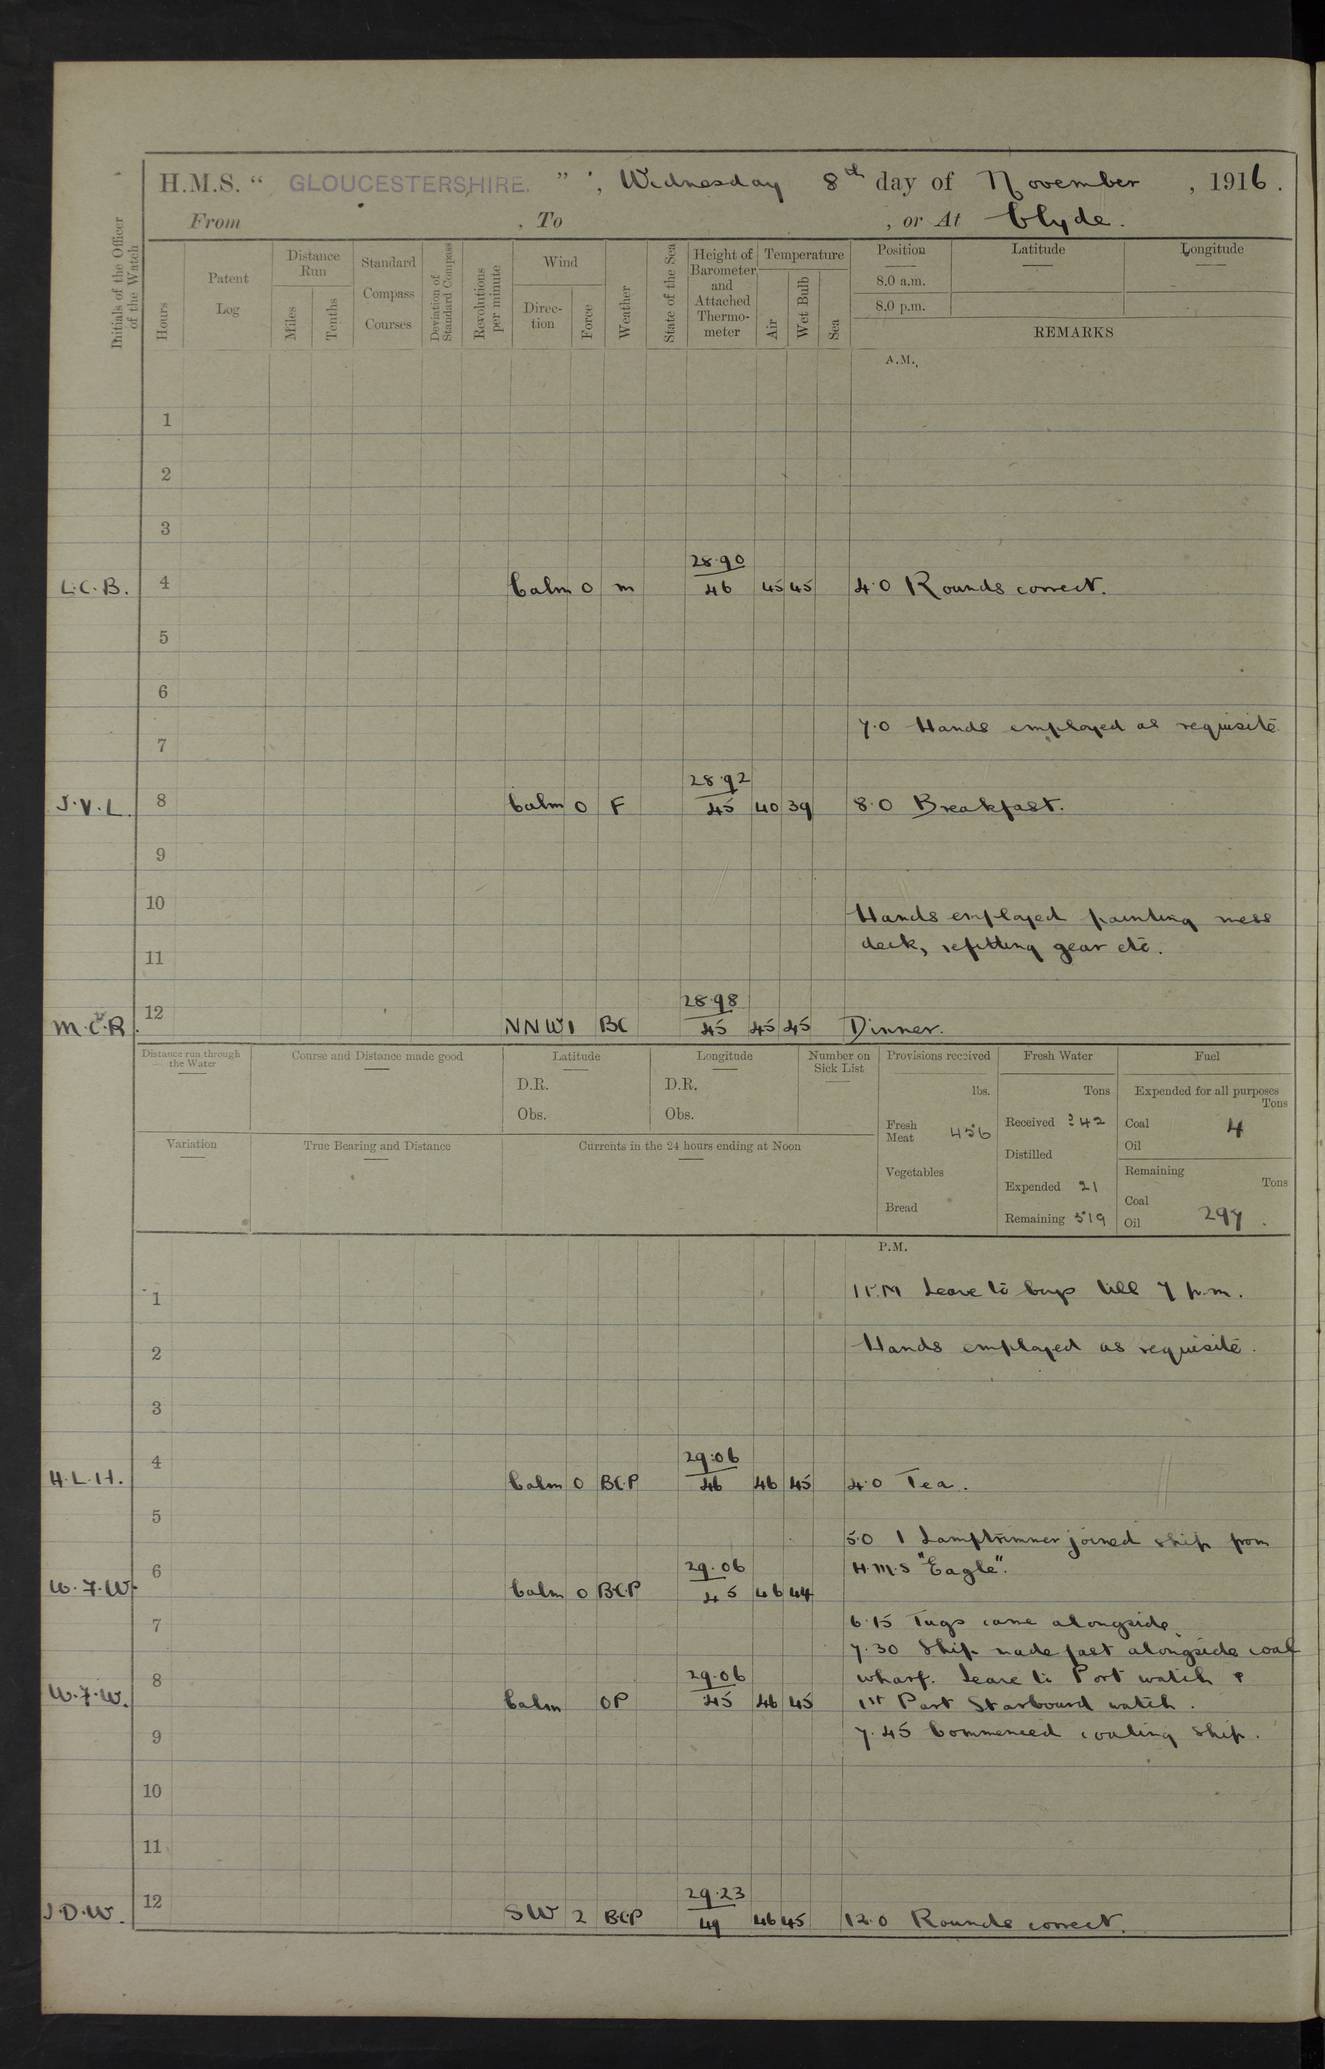 H.M.S. “ GLOUCESTERSHIRE. ”, Wednesday 8th day of November, 1916.
From , To , or At Clyde.
Initials of the Officer of the Watch
Hours
Patent Log
Distance Run
Miles
Tenths
Standard Compass Courses
Deviation of Standard Compass
Revolutions per minute
Wind
Direc-tion
Force
Weather
State of the Sea
Height of Barometer and Attached Thermo-meter
Temperature
Air
Wet Bulb
Sea
Position Latitude Longitude
8.0 a.m.
8.0 p.m.
REMARKS
A.M.
1
2
3
28.90
L.C.B. 4 Calm 0 m 46 45 45 4.0 Rounds correct.
5
6
7.0 Hands employed as requisite
7
28.92
J.V.L. 8 Calm 0 F 45 40 39 8.0 Breakfast.
9
10
Hands employed painting mess
deck, refitting gear etc.
11
28.98
M.C.R. 12 NNW 1 BC 45 45 45 Dinner.
Distance run through the Water
Course and Distance made good
Latitude
D.R.
Obs.
Longitude
D.R.
Obs.
Number on Sick List
Variation
True Bearing and Distance
Currents in the 24 hours ending at Noon
Provisions received
lbs.
Fresh Meat 456
Vegetables
Bread
Fresh Water
Tons
Received 342
Distilled
Expended 21
Remaining 519
Fuel
Expended for all purposes
Tons
Coal 4
Oil
Remaining
Tons
Coal 297.
Oil
P.M.
1 1 P.M Leave to boys till 7 p.m.
2 Hands employed as requisite.
3
29.06
H.L.H. 4 Calm 0 BCP 46 46 45 4.0 Tea.
5
5.0 1 Lamptrimmer joined ship from
H.M.S "Eagle".
29.06
W.F.W. 6 Calm 0 BCP 45 46 44
6.15 Tugs came alongside.
7
7.30 Ship made fast alongside coal
wharf. Leave to Port watch &
29.06
W.F.W. 8 Calm OP 45 46 45 1st Part Starboard watch.
9 7.45 Commenced coaling ship.
10
11
29.23
J.D.W. 12 SW 2 BCP 49 46 45 12.0 Rounds correct.